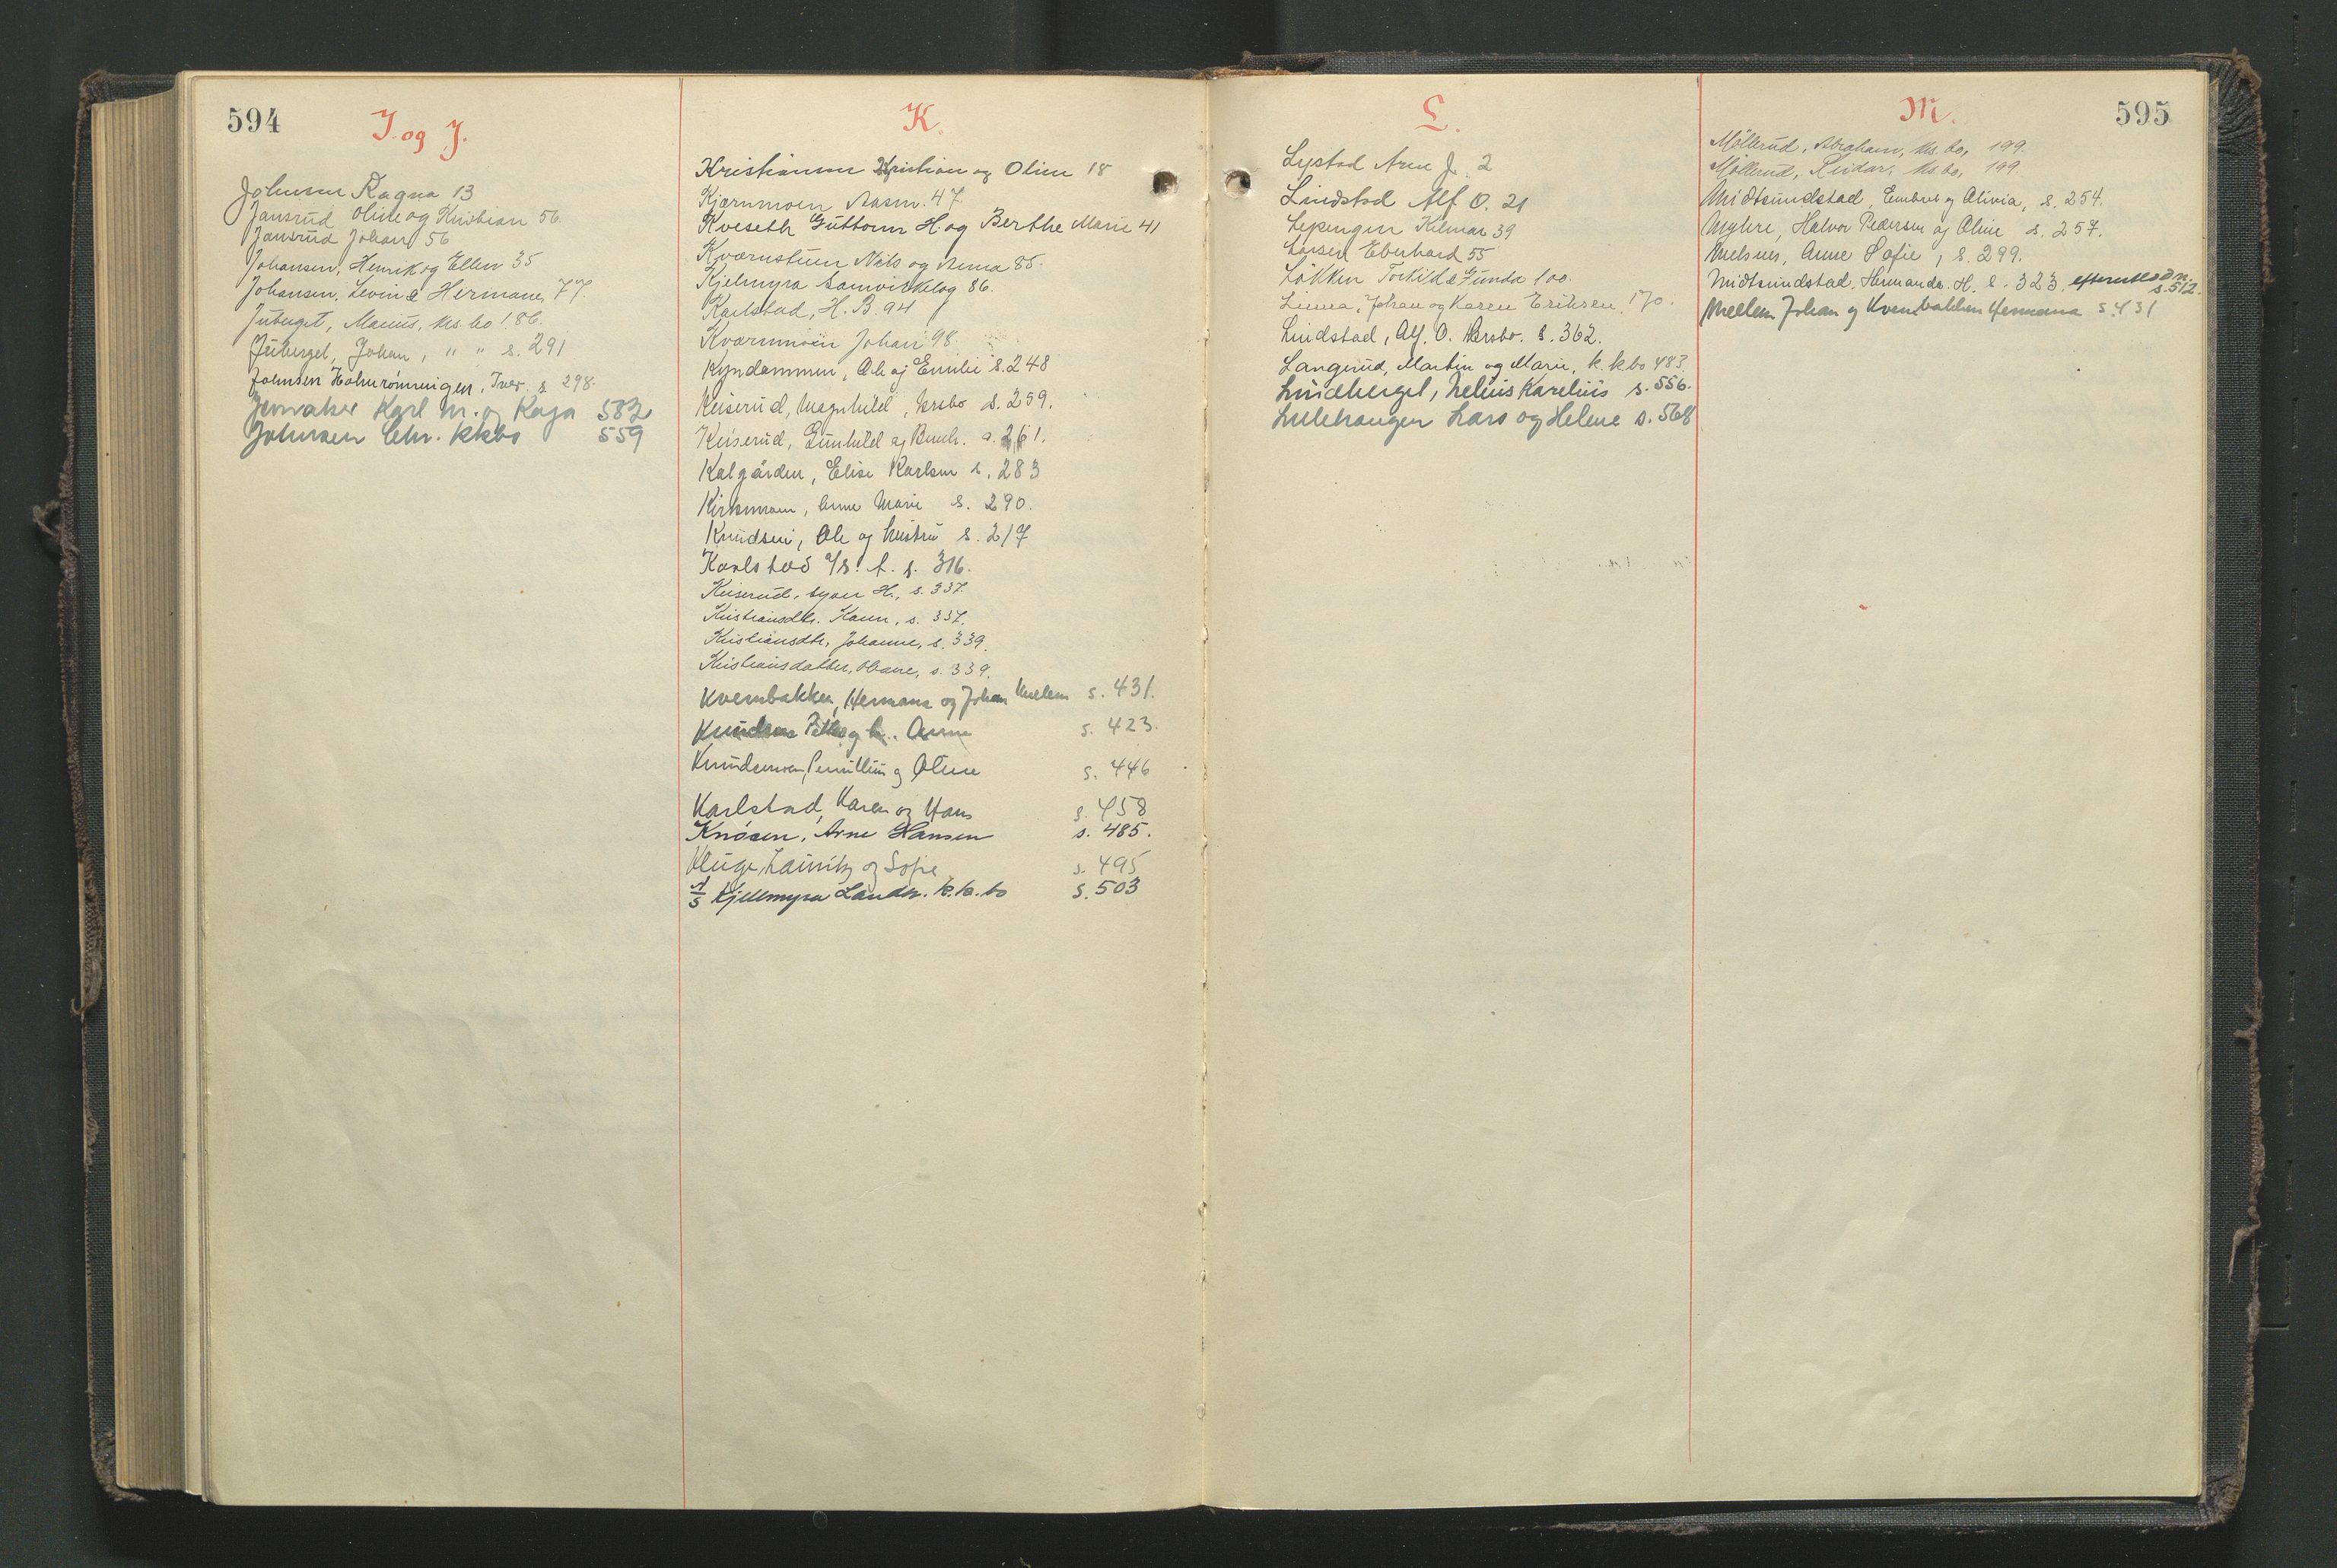 594
I. og J.
Johnsen Ragna 13
Jansrud Oline og Kristian 56
Jansrud Johan 56
Johansen, Henrik og Ellen 35
Johansen, Levin & Hermane, 77.
Juberget, Marius, ks. bo 186.
Juberget, Johan, " " s. 291
Johnsen Holmrønningen, Iver. s 298.
Jernaker Karl M. og Kaja 582
Johnsen Chr. kkbo 559
K.
Kristiansen Kristian og Oline 18
Kjærnmoen Aasm. 47
Kveseth Guttorm H. og Berthe Marie 41
Kværnstuen Nils og Anna 85.
Kjelmyra Samvirkelag 86.
Karlstad, H. B. 94
Kværnmoen Johan 98
Kyndammen, Ole og Emilie s. 248
Keiserud, Magnhild, krsbo s. 259.
Keiserud, Gunhild og s. 261.
Kalgården, Elise Karlsen s. 283
Kirkemoen, Anne Marie s. 290.
Knudsen, Ole og hustru s. 217
Karlstad A/S. s. 316.
Keiserud, H., s. 337.
Kristiansdtr. Karen, s. 337.
Kristiansdtr, Johanne, s. 339.
Kristiansdatter, s. 339.
Kvernbakken, Hermana og Johan Mellem s. 431.
Knudsen Petter og Anne s. 423.
Knudsmoen, og Oline s. 446
Karlstad, Karen og Hans s. 458
Knøsen, Arne Hansen s. 485.
Kluge, og Sofie s. 495
A/S Kjellmyra Landh. k.k.bo s. 503
L.
Lystad Arne J. 2
Lindstad Alf O. 21
Lepengen Hilmar 39
Larsen Eberhard 55
Løkken Torkild & Gunda 100.
Linna, Johan og Karen Eriksen, 170.
Lindstad, Alf. O. krsbo. s. 362.
Langerud, Martin og Marie, k.k.bo 483.
Lindberget, Nelius Karelius s. 556.
Lillehaugen Lars og Helene s. 568
M.
595
Møllerud, Abraham, ks. bo, 199.
Møllerud, Reidar, ks bo, 199.
Midtsundstad, Embret og Olivia, s. 254.
Myhre, Halvor Pedersen og Oline s. 257.
Anne Sofie, s. 299.
Midtsundstad, Hermandr. H. s. 323.
s. 512.
Mellem Johan og Kvernbakken Hermana s. 431